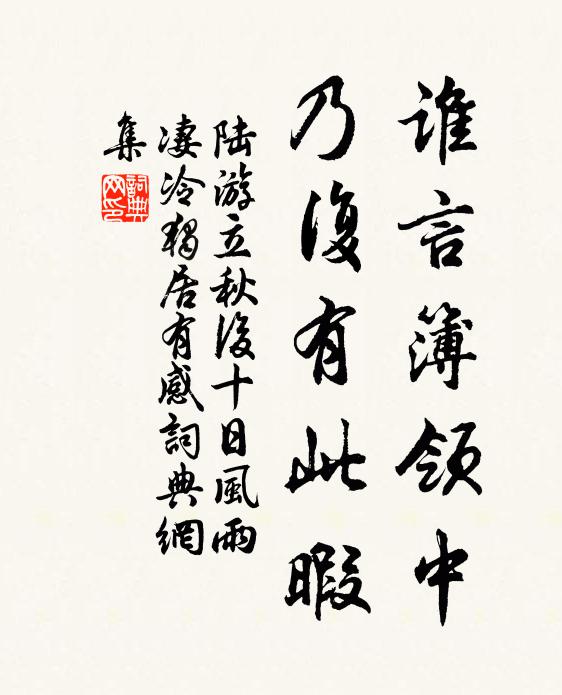 誰言簿領中
乃復有此暇
陸游立秋後十日風雨
淒冷獨居有感詞典網
集
詞典网印